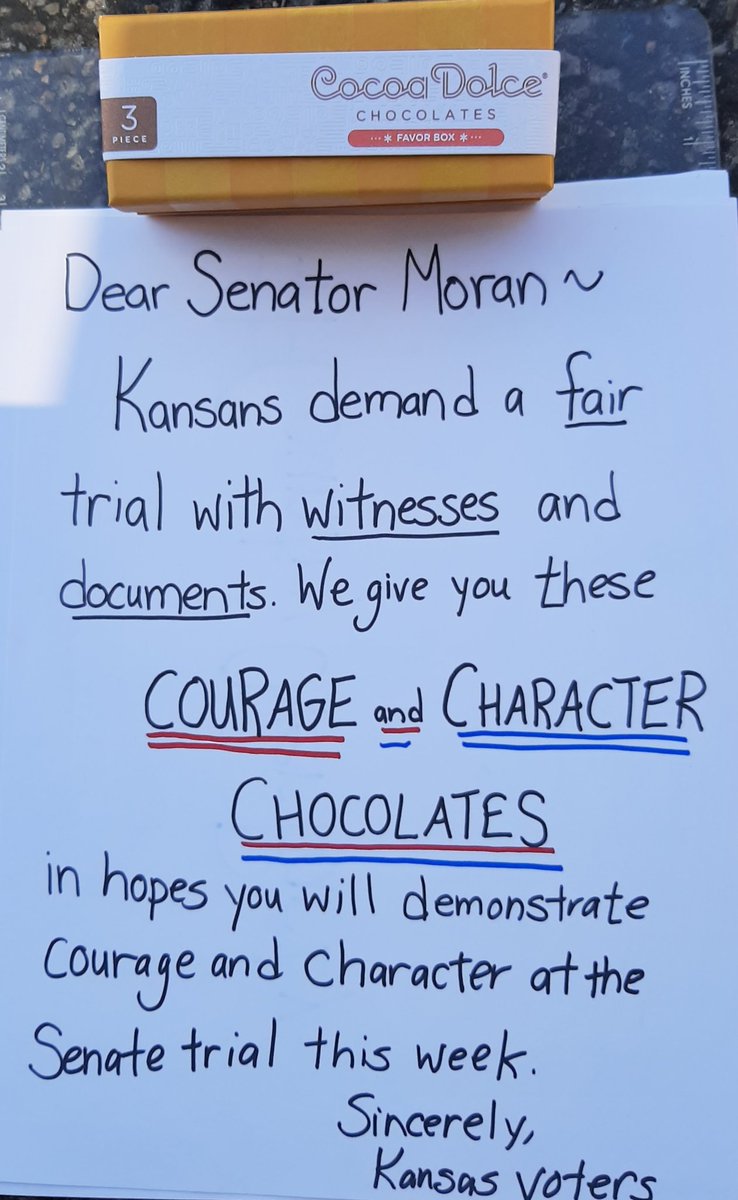 Cocoa Dolce®
CHOCOLATES
3
PIECE
FAVOR BOX
INCHES
Dear Senator Moran ~
Kansans demand a fair
trial with witnesses and
documents. We give you these
COURAGE and CHARACTER
CHOCOLATES
in hopes you will demonstrate
Courage and Character at the
Senate trial this week.
Sincerely,
Kansas voters